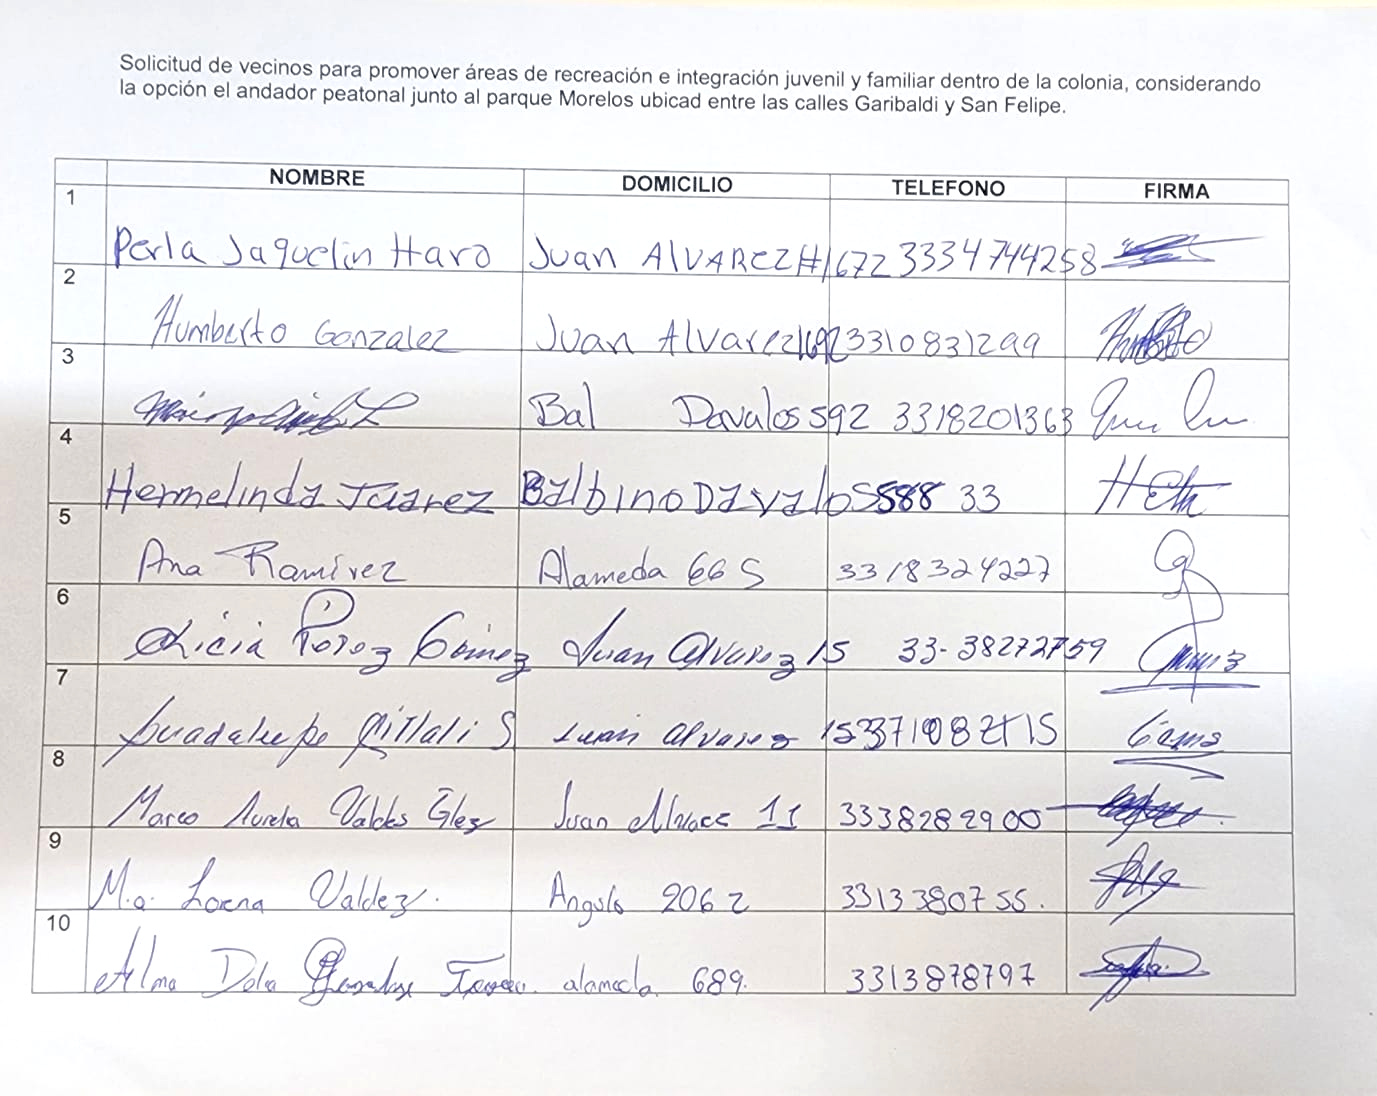 Solicitud de vecinos para promover áreas de recreación e integración juvenil y familiar dentro de la colonia, considerando
la opción el andador peatonal junto al parque Morelos ubicad entre las calles Garibaldi y San Felipe.
NOMBRE DOMICILIO TELEFONO FIRMA
1 Perla Jaquelin Haro Juan ALVAREZ #1672 3334744258
2 Humberto Gonzalez Juan Alvarez 1692 3310831299
3 Bal Davalos 592 3318201363
4 Hermelinda Juarez Balbino Davalos 588 33
5 Ana Ramirez Alameda 665 3318324227
6 Licia Perez Gómez Juan Alvarez 15 33-38272759
7 Guadalupe Citlali S Juan Alvarez 15
8 Marco Aurelio Valdes Glez Juan Alvarez 11 3338282900
9 M.a. Lorena Valdez. Angulo 2062 3313380755.
10 Alma Delia alameda 689. 3313878797